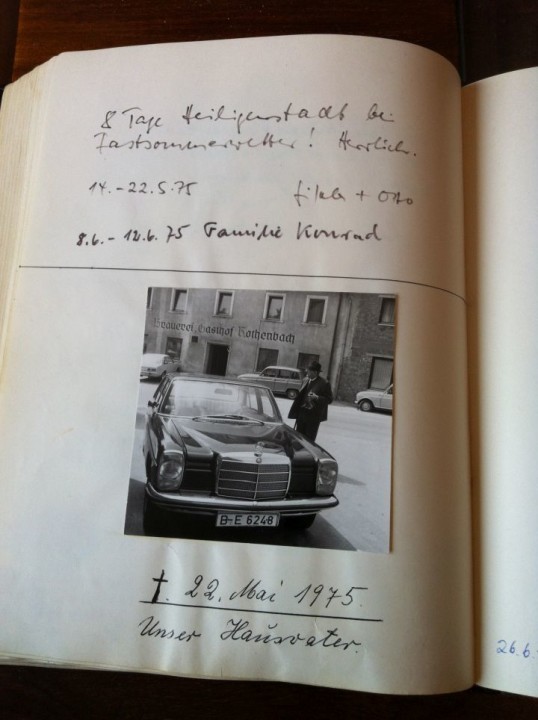 8 Tage Heiligenstadt bei
Fastsommerwetter! Herrlich.
14.-22.5.75 + Otto
8.6.-12.6.75 Familie Konrad
Brauerei Gasthof Rothenbach
B-E 6248
†. 22. Mai 1975.
Unser Hausvater.
26.6.